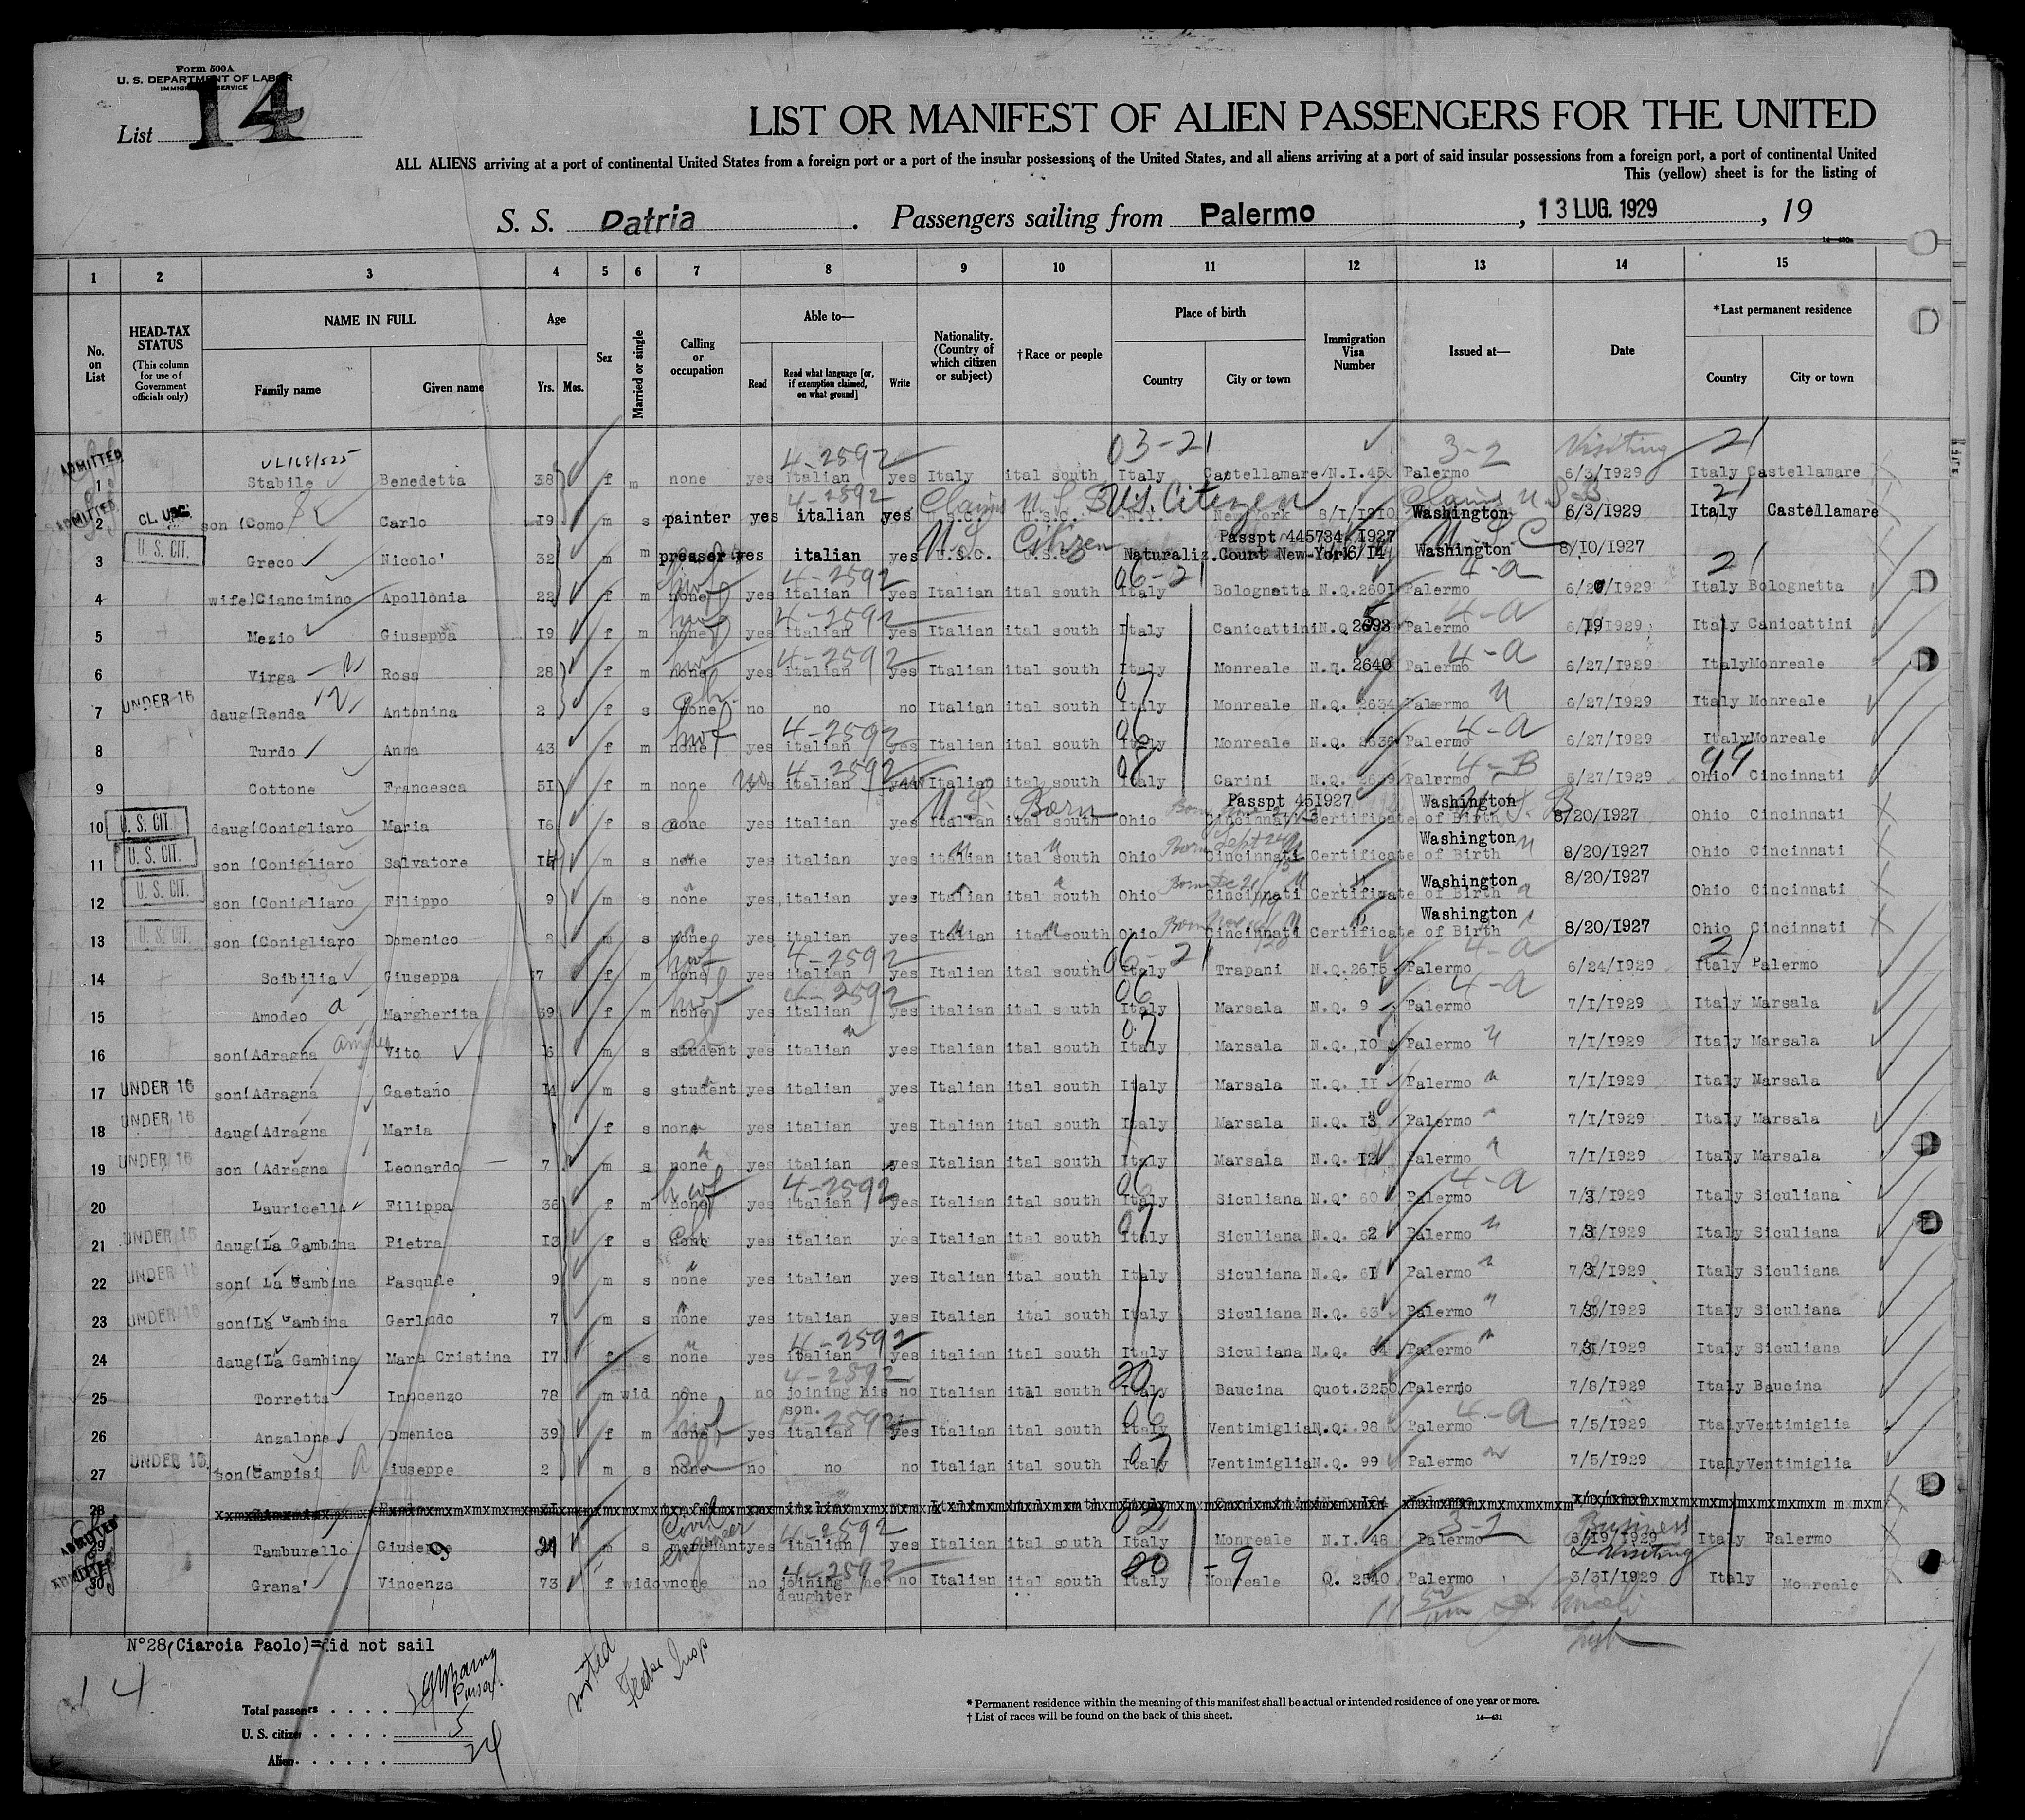 Form 500A
U. S. DEPARTMENT OF LABOR
IMMIGRATION SERVICE
List 14
LIST OR MANIFEST OF ALIEN PASSENGERS FOR THE UNITED
ALL ALIENS arriving at a port of continental United States from a foreign port or a port of the insular possessions of the United States, and all aliens arriving at a port of said insular possessions from a foreign port, a port of continental United
This (yellow) sheet is for the listing of
S. S. Patria . Passengers sailing from Palermo , 13 LUG. 1929 , 19
1 2 3 4 5 6 7 8 9 10 11 12 13 14 15
No. on List
HEAD-TAX STATUS (This column for use of Government officials only)
NAME IN FULL Family name Given name
Age Yrs. Mos.
Sex
Married or single
Calling or occupation
Able to— Read Read what language [or, if exemption claimed, on what ground] Write
Nationality. (Country of which citizen or subject)
†Race or people
Place of birth Country City or town
Immigration Visa Number
Issued at—
Date
*Last permanent residence Country City or town
03-21 3-2 Visiting 21
ADMITTED 1 Stabile Benedetta 38 f m none yes 4-2592 italian yes Italy ital south Italy Castellamare N.I.45 Palermo 6/3/1929 Italy Castellamare
ADMITTED 2 CL. USC. son (Como Carlo 19 m s painter yes 4-2592 italian yes U.S.C. U.S.C. N.Y. New York 8/1/1910 Washington 6/3/1929 Italy Castellamare
Claims U.S. Citizen Claims U S B
3 U. S. CIT. Greco Nicolo' 32 m m presser yes italian yes U.S.C. U.S.C. Naturaliz.Court New-York Passpt 445734/1927 Washington 8/10/1927
U.S. Citizen U S C 21
4 wife)Ciancimino Apollonia 22 f m none hwf yes 4-2592 italian yes Italian ital south Italy Bolognetta N.Q.2601 Palermo 4-a Italy Bolognetta
5 Mezio Giuseppa 19 f m none hwf yes 4-2592 italian yes Italian ital south Italy Canicattini N.Q. Palermo 4-a 6/19/1929 Italy Canicattini
6 Virga Rosa 28 f m none hwf yes 4-2592 italian yes Italian ital south Italy Monreale N.Q. 2640 Palermo 4-a 6/27/1929 Italy Monreale
7 UNDER 16 daug(Renda Antonina 2 f s none no no no Italian ital south Italy Monreale N.Q. 2634 Palermo 6/27/1929 Italy Monreale
8 Turdo Anna 43 f m none hwf yes 4-2592 italian yes Italian ital south Italy Monreale N.Q. 2636 Palermo 4-a 6/27/1929 Italy Monreale
9 Cottone Francesca 51 f m none 4-2592 italian Italian ital south Italy Carini N.Q. Palermo 4-B 6/27/1929 99 Ohio Cincinnati
U.S. Born Passpt 451927 Washington
10 U. S. CIT. daug(Conigliaro Maria 16 f s none yes italian yes Italian ital south Ohio Cincinnati Certificate of Birth 8/20/1927 Ohio Cincinnati
Born Sept 24 Washington
11 U. S. CIT. son (Conigliaro Salvatore 14 m s none yes italian yes italian ital south Ohio Cincinnati Certificate of Birth 8/20/1927 Ohio Cincinnati
Born Dec 21 Washington
12 U. S. CIT. son (Conigliaro Filippo 9 m s none yes italian yes Italian ital south Ohio Cincinnati Certificate of Birth 8/20/1927 Ohio Cincinnati
Born Nov Washington
13 U. S. CIT. son (Conigliaro Domenico 8 m s none yes italian yes Italian ital south Ohio Cincinnati Certificate of Birth 8/20/1927 Ohio Cincinnati
14 Scibilia Giuseppa f m none hwf yes 4-2592 italian yes Italian ital south 06-21 Italy Trapani N.Q.2615 Palermo 4-a 6/24/1929 21 Italy Palermo
15 Amodeo Margherita 39 f m none hwf yes 4-2592 italian yes italian ital s uth 06 Italy Marsala N.Q. 9 Palermo 4-a 7/1/1929 Italy Marsala
16 son(Adragna Vito 16 m s student yes italian yes Italian ital south 07 Italy Marsala N.Q. 10 Palermo 7/1/1929 Italy Marsala
17 UNDER 16 son(Adragna Gaetano 14 m s student yes italian yes Italian ital south Italy Marsala N.Q. 11 Palermo 7/1/1929 Italy Marsala
18 UNDER 16 daug(Adragna Maria f s none yes italian yes Italian ital south Italy Marsala N.Q. 13 Palermo 7/1/1929 Italy Marsala
19 UNDER 16 son (Adragna Leonardo 7 m s none yes italian yes Italian ital south Italy Marsala N.Q. 12 Palermo 7/1/1929 Italy Marsala
20 Lauricella Filippa 36 f m none hwf yes 4-2592 italian yes Italian ital south 06 Italy Siculiana N.Q. 60 Palermo 4-a 7/3/1929 Italy Siculiana
21 UNDER 16 daug(La Gambina Pietra 13 f s none yes italian yes Italian ital south 07 Italy Siculiana N.Q. 62 Palermo 7/3/1929 Italy Siculiana
22 UNDER 16 son( La Gambina Pasquale 9 m s none yes italian yes Italian ital south Italy Siculiana N.Q. 61 Palermo 7/3/1929 Italy Siculiana
23 UNDER 16 son(La Gambina Gerlando 7 m s none yes italian yes Italian ital south Italy Siculiana N.Q. 63 Palermo 7/3/1929 Italy Siculiana
24 daug(La Gambina Mara Cristina 17 f s none yes 4-2592 italian yes italian ital south Italy Siculiana N.Q. 64 Palermo 7/3/1929 Italy Siculiana
25 Torretta Innocenzo 78 m wid none no 4-2592 joining his son. no Italian ital south 20 Italy Baucina Quot.3250 Palermo 7/8/1929 Italy Baucina
26 Anzalone Dmenica 39 f m none hwf yes 4-2592 italian yes Italian ital south 06 Italy Ventimiglia N.Q. 98 Palermo 4-a 7/5/1929 Italy Ventimiglia
27 UNDER 16 son(Campisi Giuseppe 2 m s none no no no Italian ital south 07 Italy Ventimiglia N.Q. 99 Palermo 7/5/1929 Italy Ventimiglia
28
ADMITTED 29 Tamburello Giuseppe m s merchant Civil engineer yes 4-2592 italian yes Italian ital south 02 Italy Monreale N.I. 48 Palermo 3-2 6/19/1929 Business & visiting Italy Palermo
ADMITTED 30 Grana' Vincenza 73 f widow none no 4-2592 joining her daughter no Italian ital south 20 -9 Italy Monreale Q. 2540 Palermo 3/31/1929 Italy Monreale
N°28(Ciarcia Paolo)=did not sail
14
Total passengers
U. S. citizens 5
Aliens 24
* Permanent residence within the meaning of this manifest shall be actual or intended residence of one year or more.
† List of races will be found on the back of this sheet. 14—431